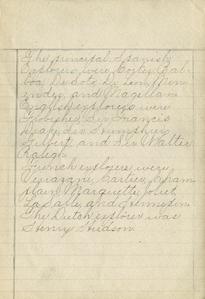 The principal Spanish
Explorers were Cortez, Bal-
boa, De Soto, De Leon, Men-
endez, and Magellan.
English explorers were
Frobisher, Sir Francis
Drake, Sir Humphrey
Gilbert and Sir Walter
Raleigh.
French explorers were
Verrazani, Cartier, Cham-
plain, Marquette, Joliet,
La Salle, and Hennepin.
The Dutch explorer was
Henry Hudson.